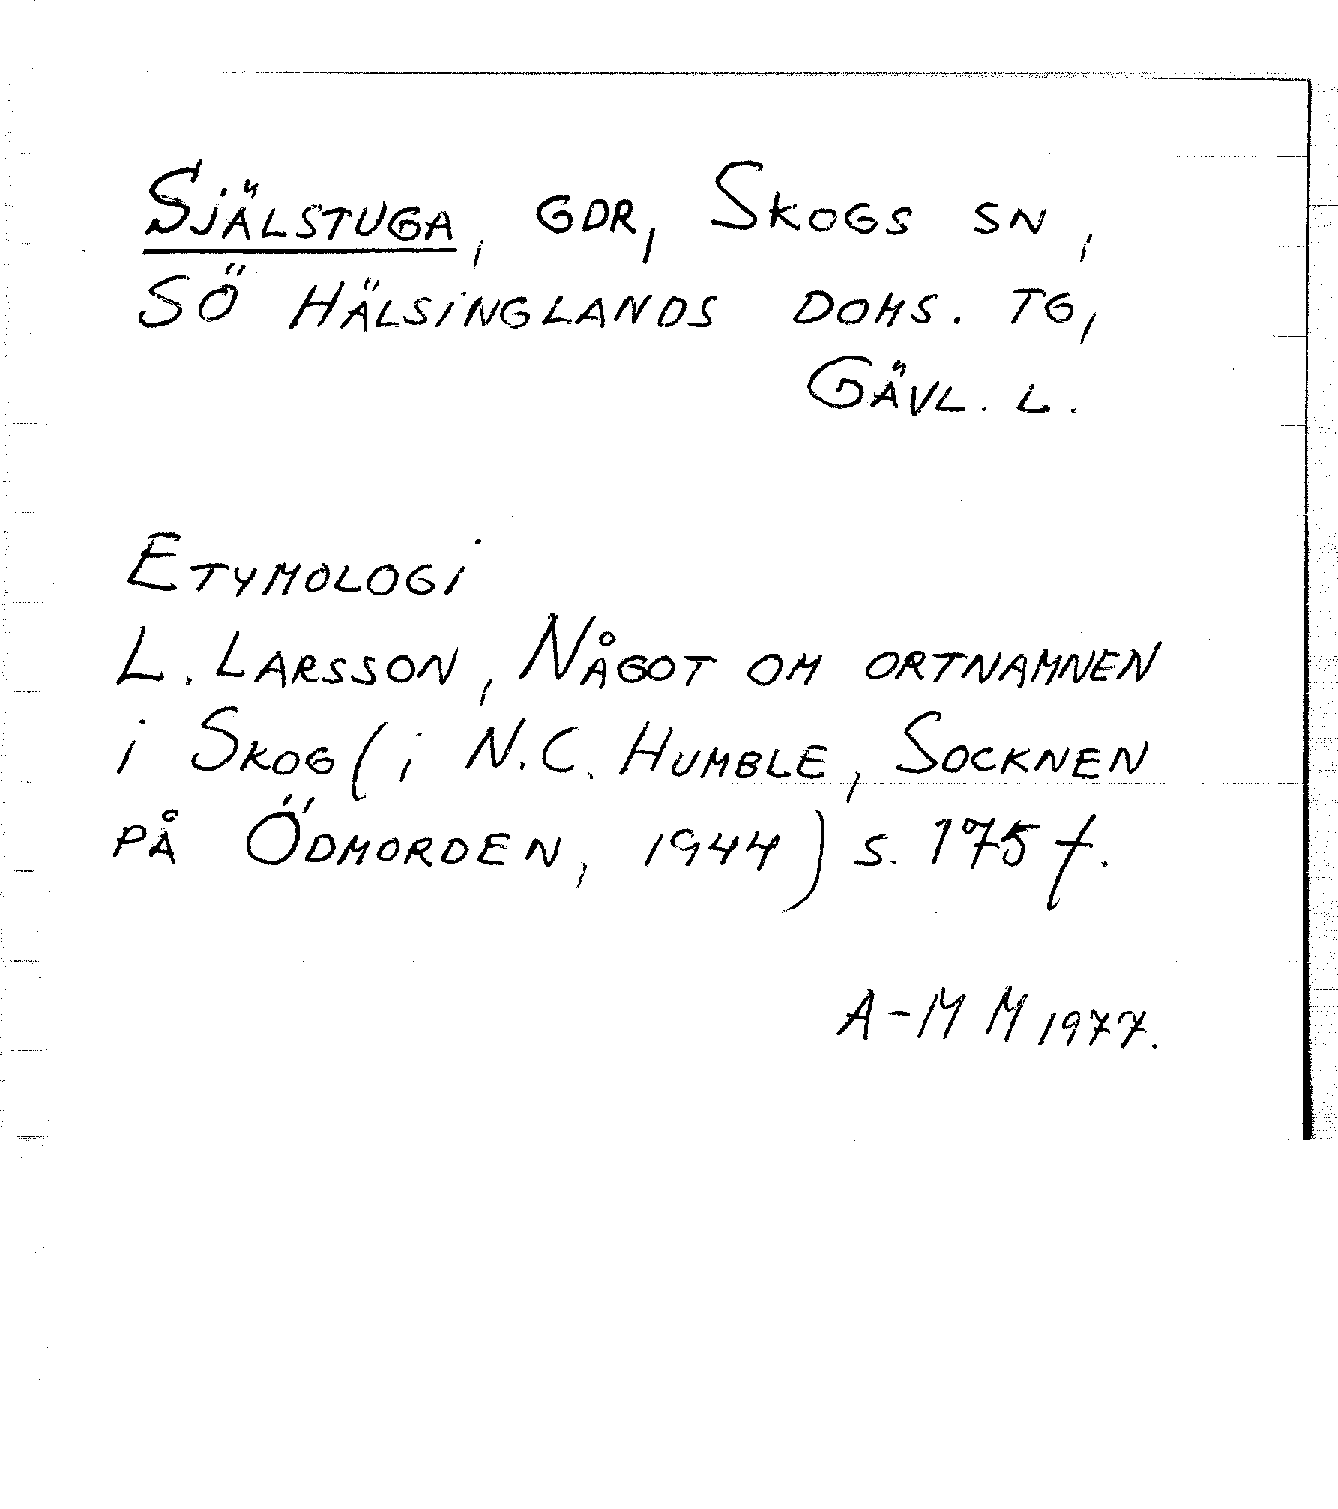 Själstuga, gdr, Skogs sn,
sö Hälsinglands doms. tg,
Gävl. l.
Etymologi
L. Larsson, Något om ortnamnen
i Skog (i N.C. Humble, Socknen
på Ödmorden, 1944) s. 175 f.
A-M M 1977.